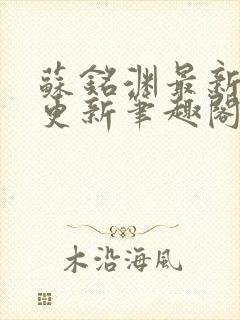 蘇銘淵最新
更新筆趣閣
木沿海風